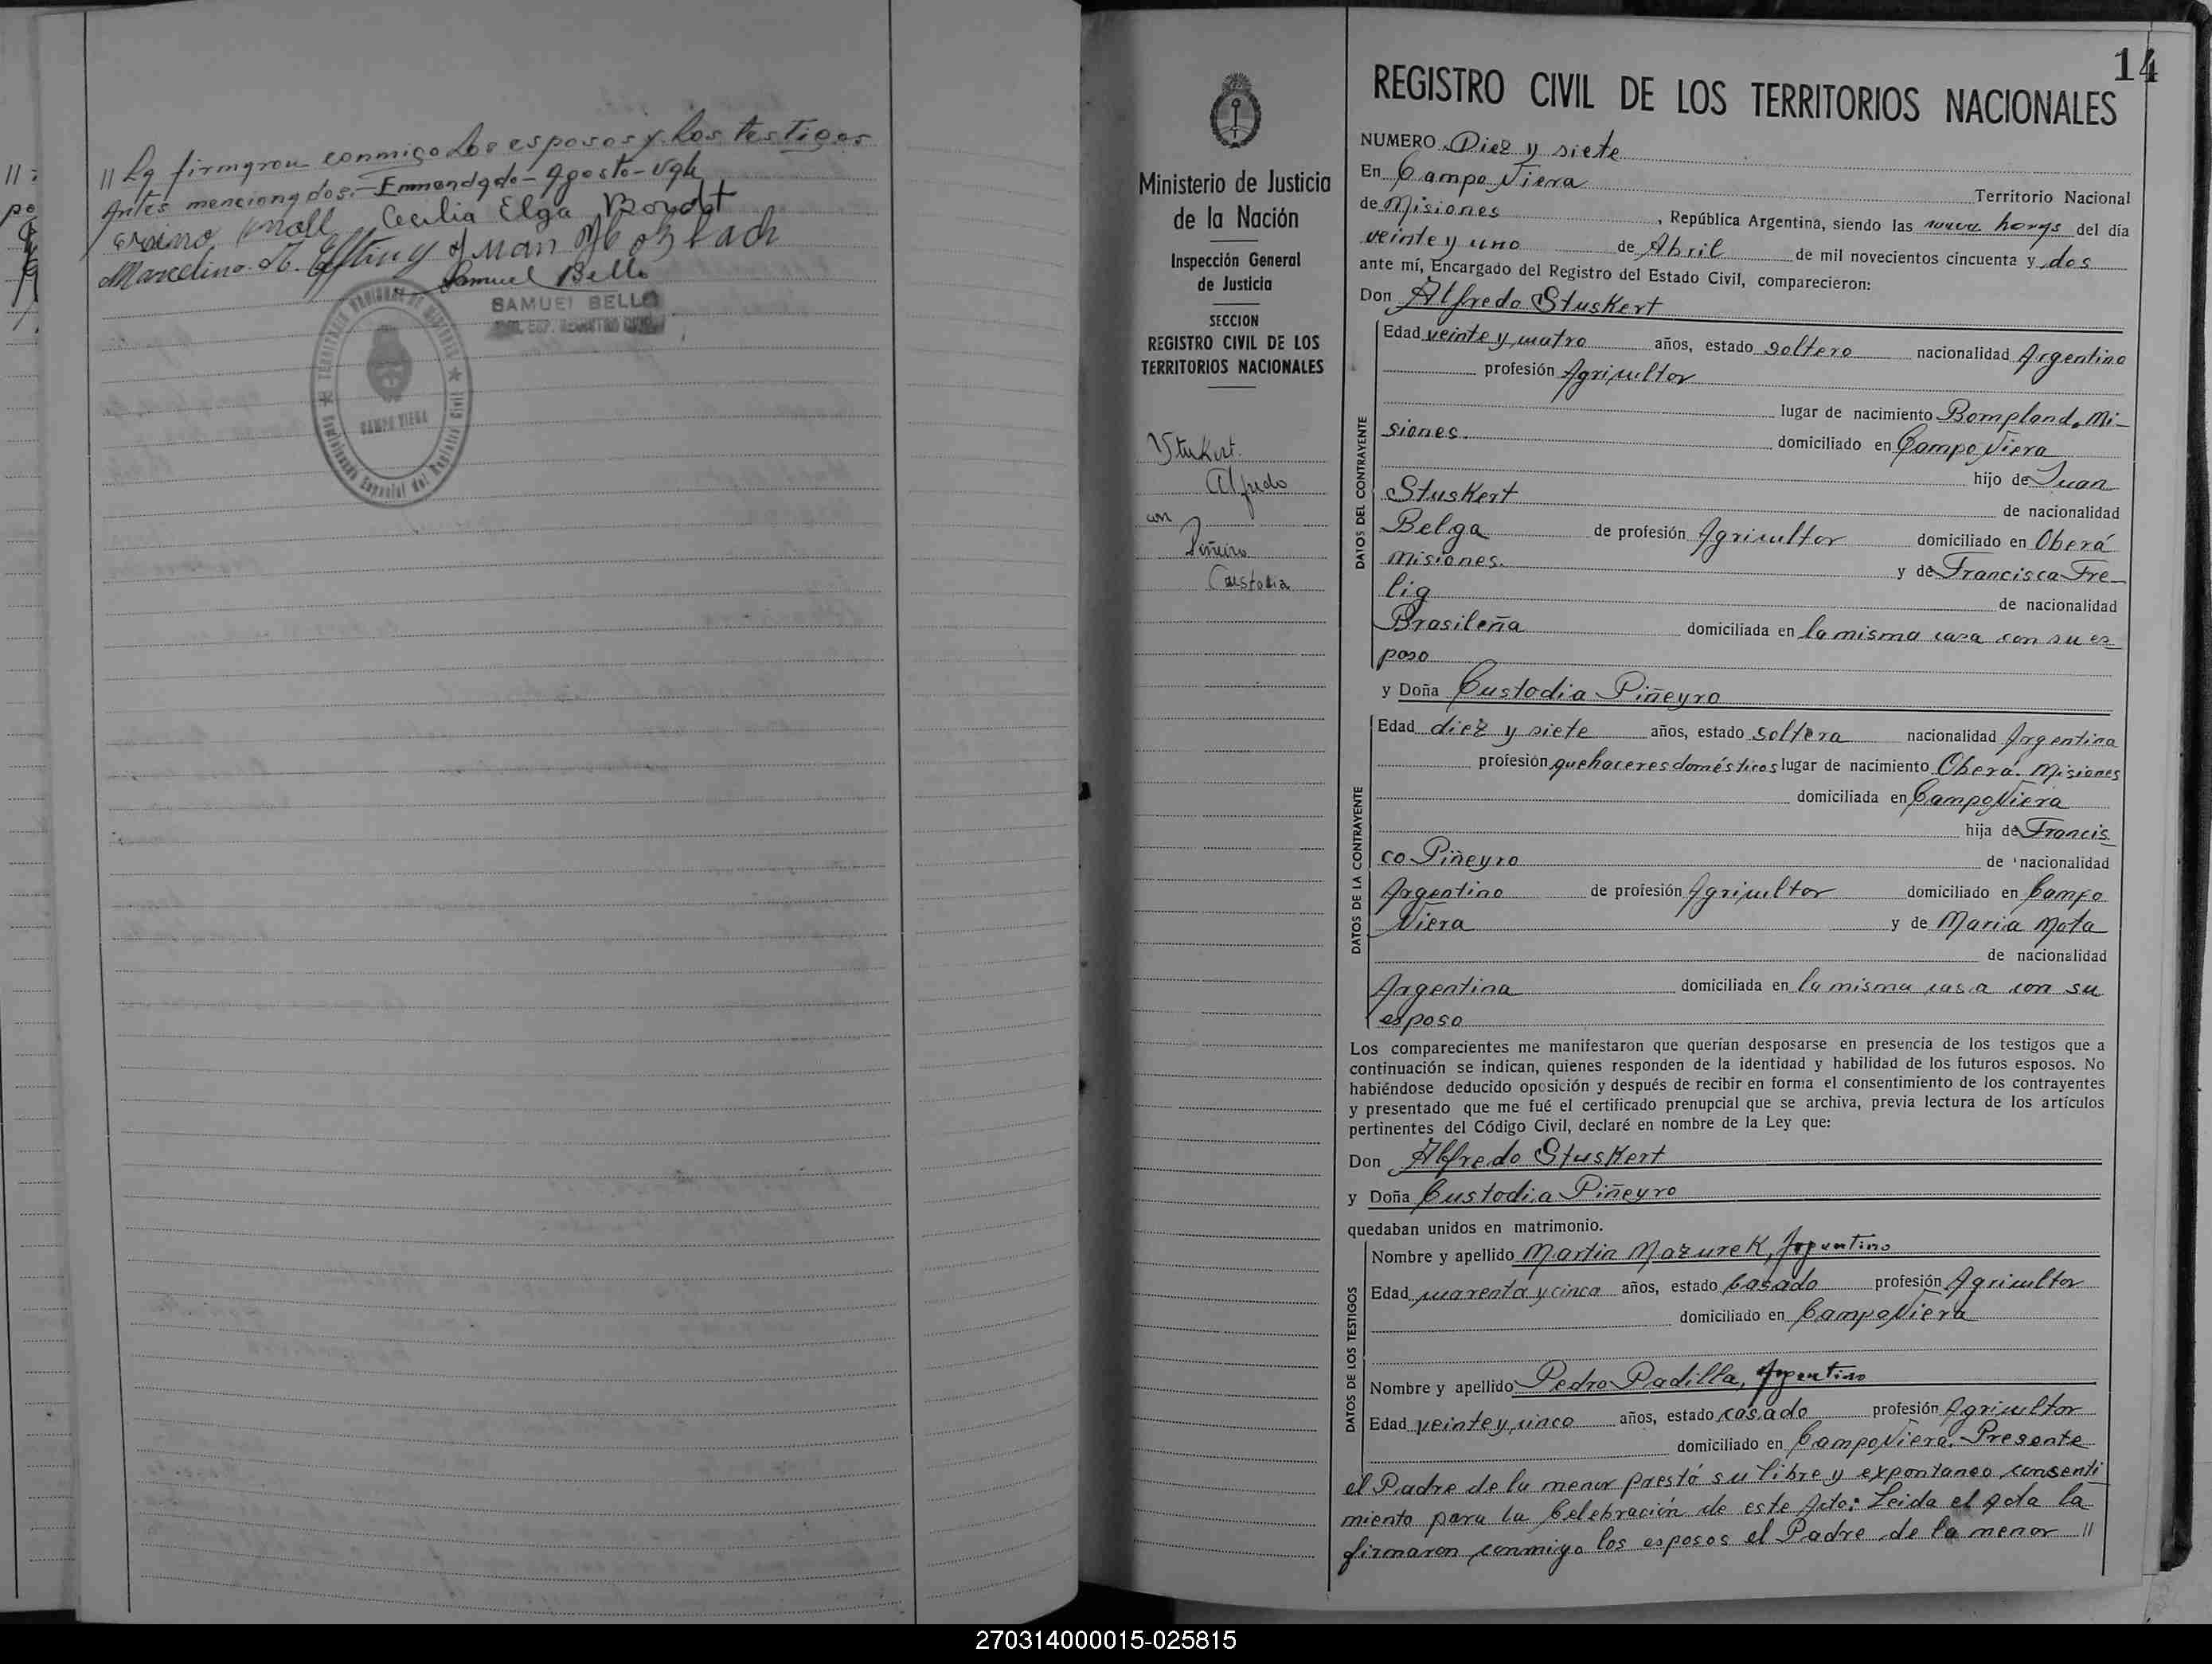 // la firmaron conmigo los esposos y los testigos
Antes mencionados.- Enmendado - Agosto - Vale
Cecilia Elga
Marcelino
Samuel Bello
SAMUEL BELLO
TERRITORIO NACIONAL DE MISIONES
CAMPO VIERA
Comisionado Especial del Registro Civil
14
Ministerio de Justicia
de la Nación
Inspección General
de Justicia
SECCION
REGISTRO CIVIL DE LOS
TERRITORIOS NACIONALES
Stuskert
Alfredo
con
Piñeiro
Custodia
REGISTRO CIVIL DE LOS TERRITORIOS NACIONALES
NUMERO Diez y siete
En Campo Viera
Territorio Nacional
de Misiones, República Argentina, siendo las nueve horas del día
veinte y uno de Abril de mil novecientos cincuenta y dos
ante mí, Encargado del Registro del Estado Civil, comparecieron:
Don Alfredo Stuskert
DATOS DEL CONTRAYENTE
Edad veinte y cuatro años, estado soltero nacionalidad Argentino
profesión Agricultor
lugar de nacimiento Bompland, Mi-
siones. domiciliado en Campo Viera
hijo de Juan
Stuskert de nacionalidad
Belga de profesión Agricultor domiciliado en Oberá
Misiones. y de Francisca Fre-
lig de nacionalidad
Brasileña domiciliada en la misma casa con su es
poso
y Doña Custodia Piñeyro
DATOS DE LA CONTRAYENTE
Edad diez y siete años, estado soltera nacionalidad Argentina
profesión quehaceres domésticos lugar de nacimiento Oberá. Misiones
domiciliada en Campo Viera
hija de Francis
co Piñeyro de nacionalidad
Argentino de profesión Agricultor domiciliado en Campo
Viera y de Maria Mota
de nacionalidad
Argentina domiciliada en la misma casa con su
esposo
Los comparecientes me manifestaron que querían desposarse en presencia de los testigos que a
continuación se indican, quienes responden de la identidad y habilidad de los futuros esposos. No
habiéndose deducido oposición y después de recibir en forma el consentimiento de los contrayentes
y presentado que me fué el certificado prenupcial que se archiva, previa lectura de los artículos
pertinentes del Código Civil, declaré en nombre de la Ley que:
Don Alfredo Stuskert
y Doña Custodia Piñeyro
quedaban unidos en matrimonio.
DATOS DE LOS TESTIGOS
Nombre y apellido Martin Mazurek, Argentino
Edad cuarenta y cinco años, estado Casado profesión Agricultor
domiciliado en Campo Viera
Nombre y apellido Pedro Padilla, Argentino
Edad veinte y cinco años, estado casado profesión Agricultor
domiciliado en Campo Viera. Presente
el Padre de la menor prestó su libre y expontaneo consenti
miento para la Celebración de este Acto: Leida el Acta la
firmaron conmigo los esposos el Padre de la menor //
270314000015-025815